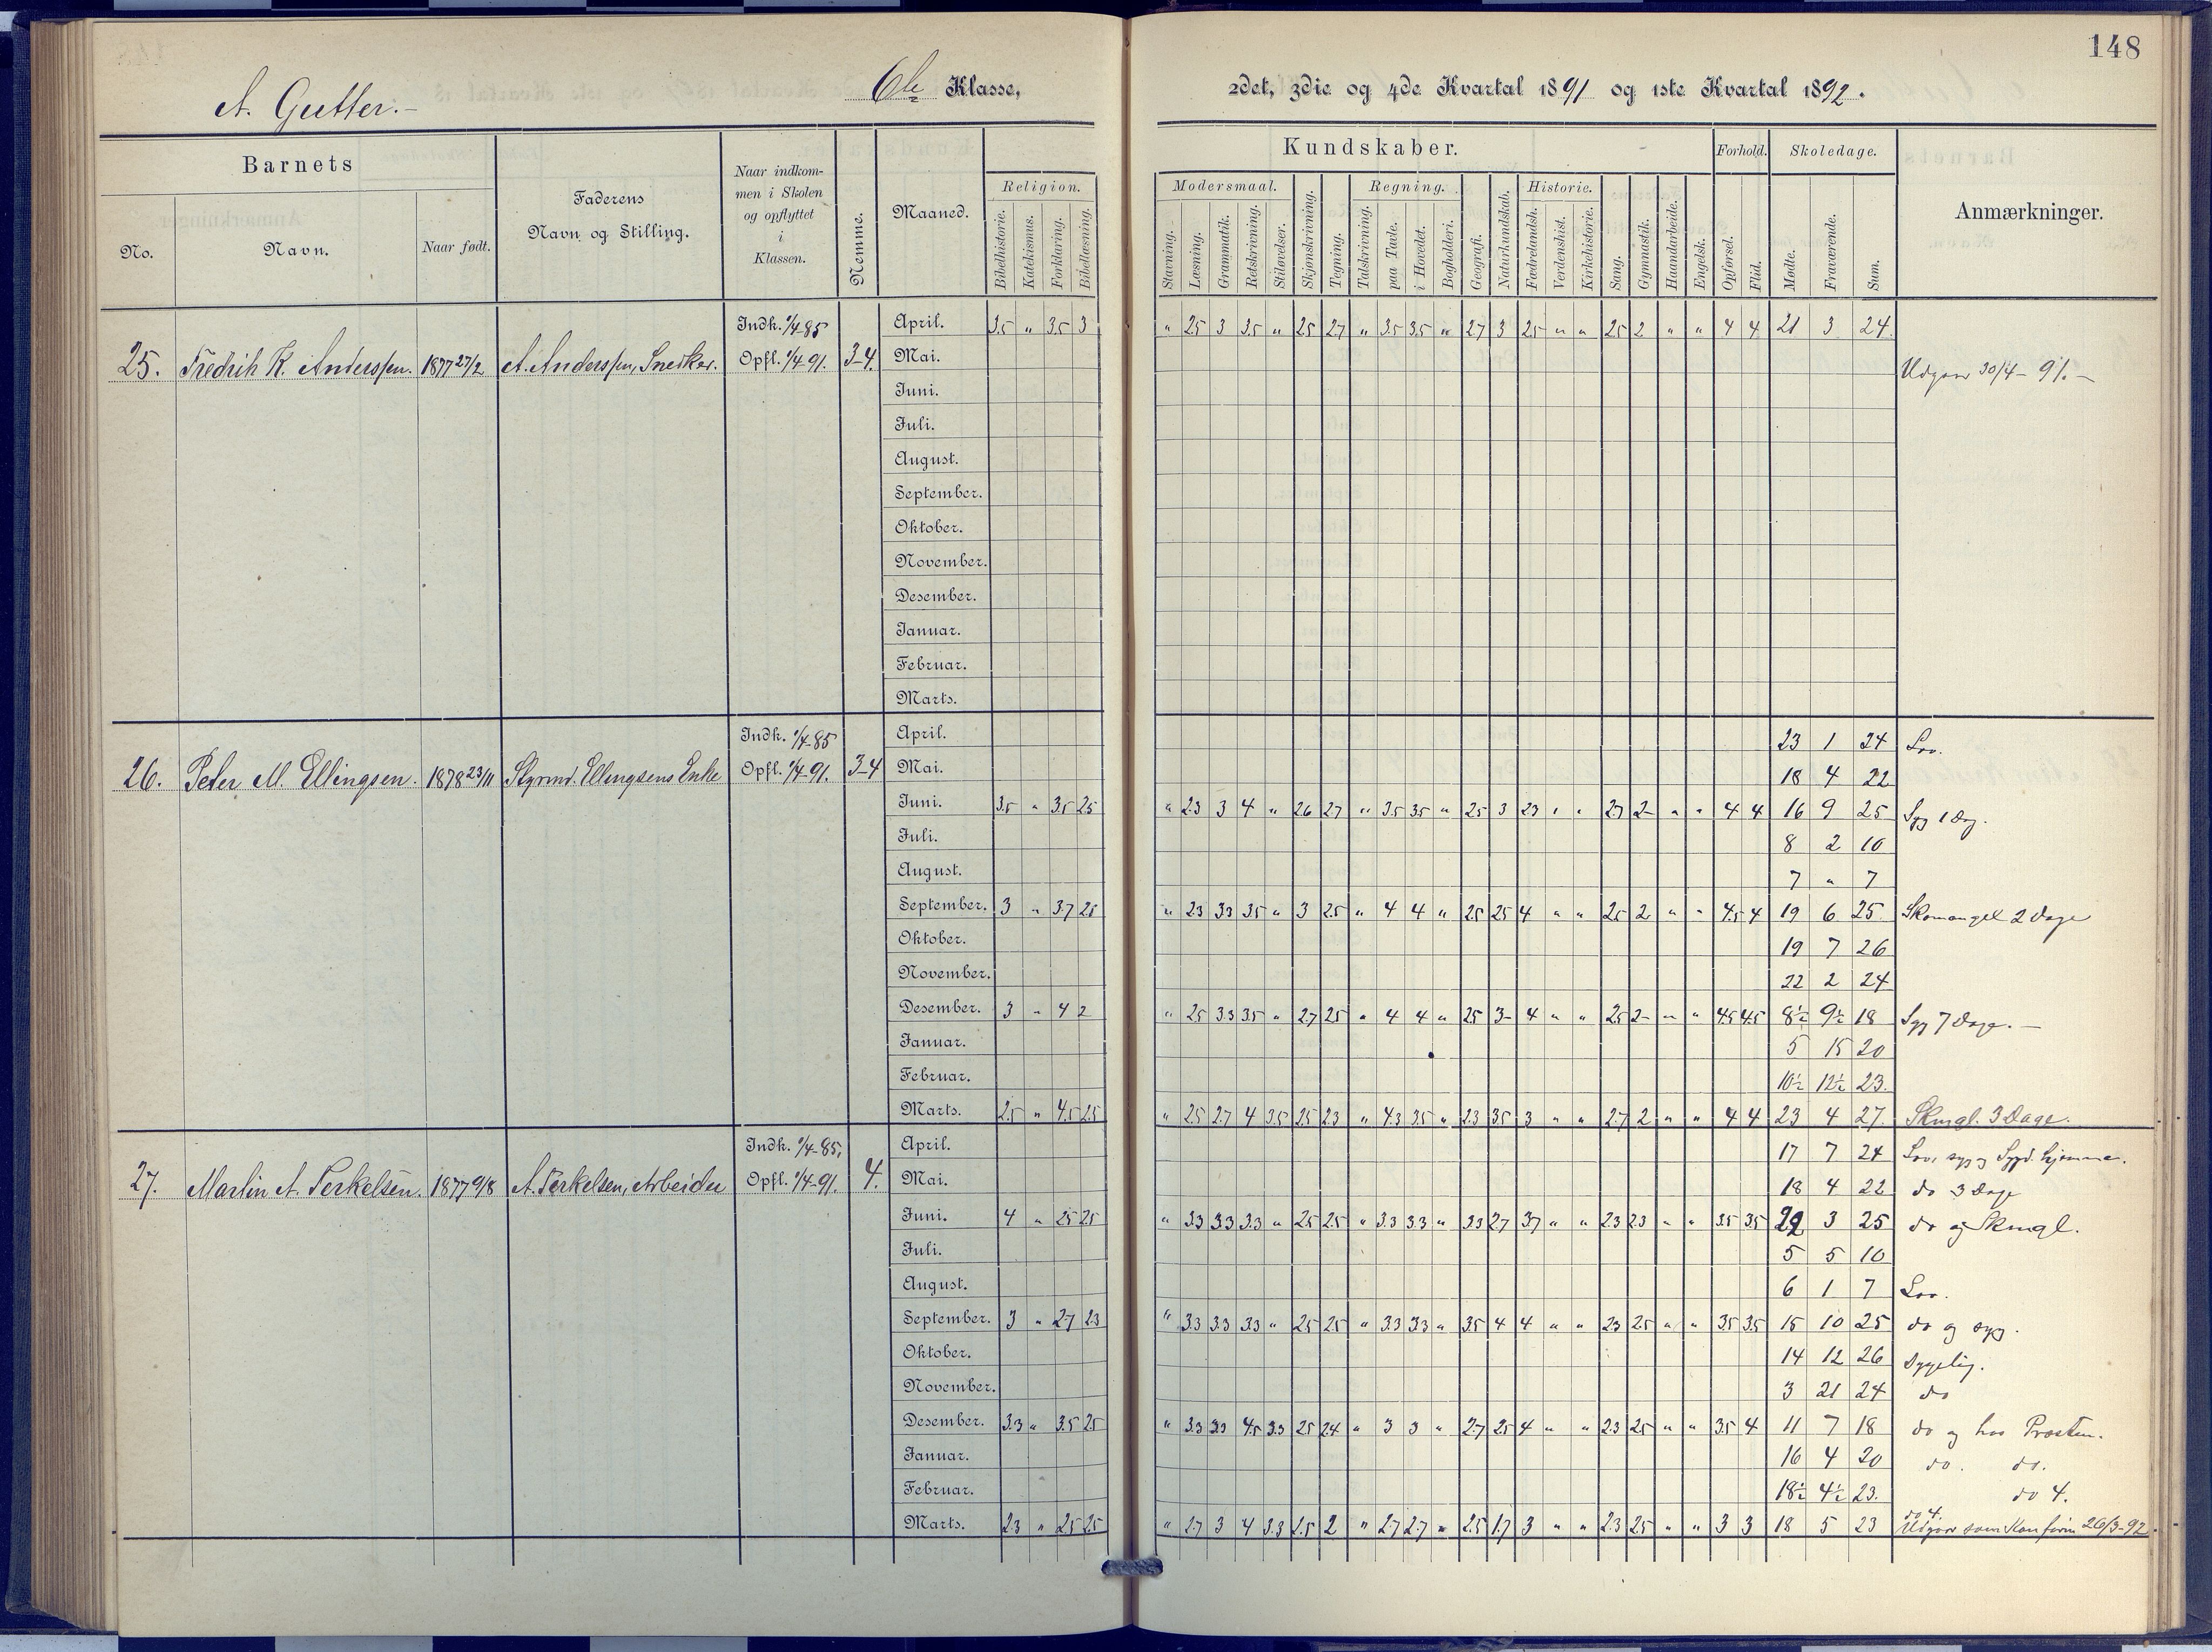 148
A. Gutter.-
6te Klasse,
2det, 3die og 4de Kvartal 1891 og 1ste Kvartal 1892.
Barnets
No.
Navn.
Naar født.
Faderens
Navn og Stilling.
Naar indkom-
men i Skolen
og opflyttet
i
Klassen.
Nemme.
Maaned.
Kundskaber.
Religion.
Bibelhistorie. Katekismus. Forklaring. Bibellæsning.
Modersmaal.
Stavning. Læsning. Grammatik. Retskrivning. Stiløvelser.
Skjønskrivning. Tegning.
Regning.
Talskrivning. paa Tavle. i Hovedet. Bogholderi.
Geografi. Naturkundskab.
Historie.
Fædrelandsh. Verdenshist. Kirkehistorie.
Sang. Gymnastik. Haandarbeide. Engelsk.
Forhold.
Opførsel. Flid.
Skoledage.
Mødte. Fraværende. Sum.
Anmærkninger.
25. Fredrik K. Anderssen. 1877 27/2 A. Anderssen, Snedker. Indk. 1/4 85 Opfl. 1/4-91. 3-4.
April. 3.5 " 3.5 3 " 2.5 3 3.5 " 2.5 2.7 " 3.5 3.5 " 2.7 3 2.5 " " 2.5 2 " " 4 4 21 3 24
Mai. Udgaar 30/4-91.-
Juni.
Juli.
August.
September.
Oktober.
November.
Desember.
Januar.
Februar.
Marts.
26. Peter M. Ellingsen. 1878 23/11 Styrmd. Ellingsens Enke Indk. 1/4-85 Opfl. 1/4-91. 3-4
April. 23 1 24 Lov.
Mai. 18 4 22
Juni. 3.5 " 3.5 2.5 " 2.3 3 4 " 2.6 2.7 " 3.5 3.5 " 2.5 3 2.3 " " 2.7 2 " " 4 4 16 9 25 Syg 1 Dag.
Juli. 8 2 10
August. 7 " 7
September. 3 " 3.7 2.5 " 2.3 3.3 3.5 " 3 2.5 " 4 4 " 2.5 2.5 4 " " 2.5 2 " " 4.5 4 19 6 25 Skomangel 2 Dage
Oktober. 19 7 26
November. 22 2 24
Desember. 3 " 4 2 " 2.5 3.3 3.5 " 2.7 2.5 " 4 4 " 2.5 3 4 " " 2.5 2 " " 4.5 4.5 8½ 9½ 18 Syg 7 Dage.-
Januar. 5 15 20
Februar. 10½ 12½ 23.
Marts. 2.5 " 4.5 2.5 " 2.5 2.7 4 3.5 2.5 2.3 " 4.3 3.5 " 2.3 3.5 3 " " 2.7 2 " " 4 4 23 4 27. Skmgl. 3 Dage.
27. Martin A. Terkelsen. 1877 9/8 A. Terkelsen, Arbeider Indk. 1/4-85, Opfl. 1/4-91. 4.
April. 17 7 24 Lov, syg, Sygd. hjemme.
Mai. 18 4 22 do 3 Dage
Juni. 4 " 2.5 2.5 " 3.3 3.3 3.3 " 2.5 2.5 " 3.3 3.3 " 3.3 2.7 3.7 " " 2.3 2.3 " " 3.5 3.5 22 3 25 do og Skmgl.
Juli. 5 5 10
August. 6 1 7 Lov.
September. 3 " 2.7 2.3 " 3.3 3.3 3.3 " 2.5 2.5 " 3.3 3.3 " 3.5 4 4 " " 2.3 2.5 " " 3.5 3.5 15 10 25 do og syg.
Oktober. 14 12 26 Sygelig.
November. 3 21 24 do
Desember. 3.3 " 3.5 2.5 " 3.3 3.3 4.5 3.3 2.5 2.4 " 3 3 " 2.7 2.5 4 " " 2.3 2.5 " " 3.5 4 11 7 18 do og hos Præsten.
Januar. 16 4 20 do. do.
Februar. 18½ 4½ 23. do 4.
Marts. 2.3 " 2.5 2.5 " 2.7 3 4 3.3 2.5 2 " 2.7 2.7 " 2.5 1.7 3 " " 2.3 2.5 " " 3 3 18 5 23 do 4. Udgaar som Konfirm 26/3-92